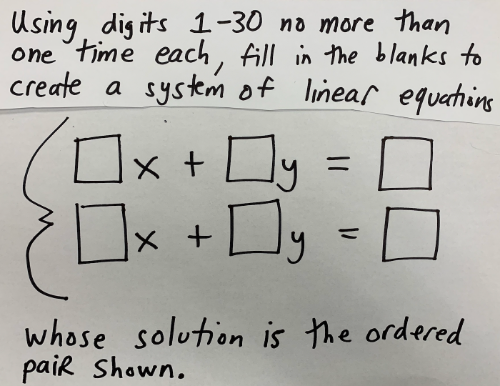 Using digits 1-30 no more than
one time each, fill in the blanks to
create a system of linear equations
□x + □y = □
□x + □y = □
whose solution is the ordered
pair shown.